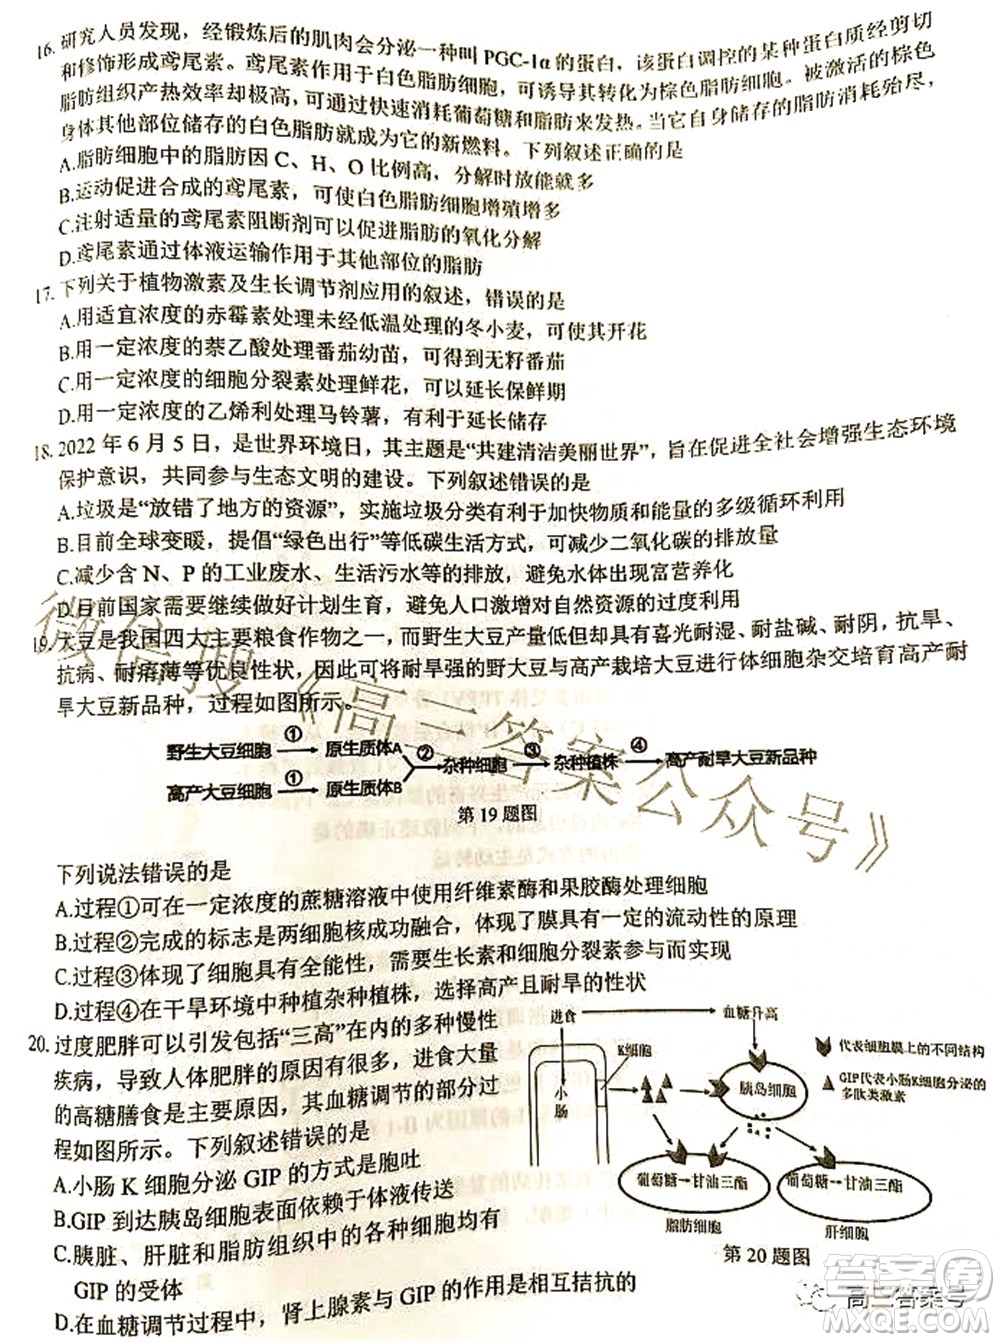 16. 研究人员发现，经锻炼后的肌肉会分泌一种叫 PGC-1α 的蛋白，该蛋白调控的某种蛋白质经剪切
和修饰形成鸢尾素。鸢尾素作用于白色脂肪细胞，可诱导其转化为棕色脂肪细胞。被激活的棕色
脂肪组织产热效率却极高，可通过快速消耗葡萄糖和脂肪来发热。当它自身储存的脂肪消耗殆尽，
身体其他部位储存的白色脂肪就成为它的新燃料。下列叙述正确的是
A.脂肪细胞中的脂肪因 C、H、O 比例高，分解时放能就多
B.运动促进合成的鸢尾素，可使白色脂肪细胞增殖增多
C.注射适量的鸢尾素阻断剂可以促进脂肪的氧化分解
D.鸢尾素通过体液运输作用于其他部位的脂肪
17. 下列关于植物激素及生长调节剂应用的叙述，错误的是
A.用适宜浓度的赤霉素处理未经低温处理的冬小麦，可使其开花
B.用一定浓度的萘乙酸处理番茄幼苗，可得到无籽番茄
C.用一定浓度的细胞分裂素处理鲜花，可以延长保鲜期
D.用一定浓度的乙烯利处理马铃薯，有利于延长储存
18. 2022 年 6 月 5 日，是世界环境日，其主题是“共建清洁美丽世界”，旨在促进全社会增强生态环境
保护意识，共同参与生态文明的建设。下列叙述错误的是
A.垃圾是“放错了地方的资源”，实施垃圾分类有利于加快物质和能量的多级循环利用
B.目前全球变暖，提倡“绿色出行”等低碳生活方式，可减少二氧化碳的排放量
C.减少含 N、P 的工业废水、生活污水等的排放，避免水体出现富营养化
D.目前国家需要继续做好计划生育，避免人口激增对自然资源的过度利用
19. 大豆是我国四大主要粮食作物之一，而野生大豆产量低但却具有喜光耐湿、耐盐碱、耐阴，抗旱、
抗病、耐瘠薄等优良性状。人们欲将耐旱强的野大豆与高产栽培大豆进行体细胞杂交培育高产耐
旱大豆新品种，过程如图所示。
野生大豆细胞 ① 原生质体A ② 杂种细胞 ③ 杂种植株 ④ 高产耐旱大豆新品种
高产大豆细胞 ① 原生质体B
第 19 题图
下列说法错误的是
A.过程①可在一定浓度的蔗糖溶液中使用纤维素酶和果胶酶处理细胞
B.过程②完成的标志是两细胞核成功融合，体现了膜具有一定的流动性的原理
C.过程③体现了细胞具有全能性，需要生长素和细胞分裂素参与而实现
D.过程④在干旱环境中种植杂种植株，选择高产且耐旱的性状
20. 过度肥胖可以引发包括“三高”在内的多种慢性
疾病，导致人体肥胖的原因有很多，进食大量
的高糖膳食是主要原因，其血糖调节的部分过
程如图所示。下列叙述错误的是
A.小肠 K 细胞分泌 GIP 的方式是胞吐
B.GIP 到达胰岛细胞表面依赖于体液传送
C.胰脏、肝脏和脂肪组织中的各种细胞均有
GIP 的受体
D.在血糖调节过程中，肾上腺素与 GIP 的作用是相互拮抗的
进食
血糖升高
K细胞
小肠
胰岛细胞
代表细胞膜上的不同结构
GIP代表小肠K细胞分泌的
多肽类激素
葡萄糖→甘油三酯
脂肪细胞
葡萄糖→甘油三酯
肝细胞
第 20 题图
微信搜《高三答案公众号》
高三答案号
答案圈
MXQE.COM